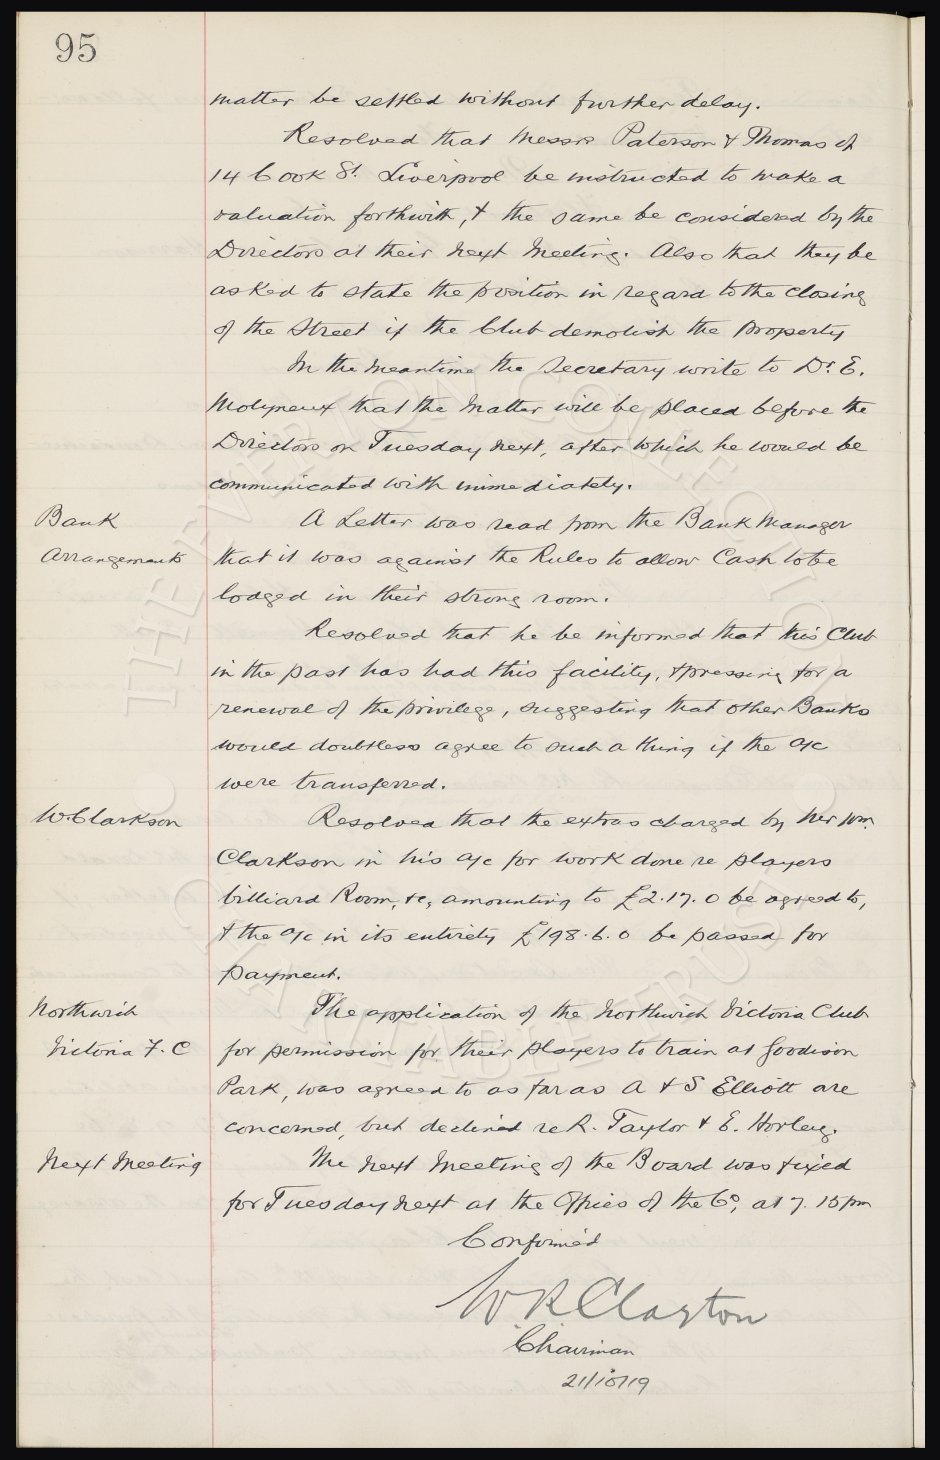 95
matter be settled without further delay.
Resolved that Messrs Paterson & Thomas of
14 Cook St. Liverpool be instructed to make a
valuation forthwith, & the same be considered by the
Directors at their next Meeting. Also that they be
asked to state the position in regard to the closing
of the Street if the Club demolish the property
In the meantime the Secretary write to Dr. E.
Molyneux that the Matter will be placed before the
Directors on Tuesday next, after which he would be
communicated with immediately.
Bank Arrangements
A Letter was read from the Bank Manager
that it was against the Rules to allow Cash to be
lodged in their strong room.
Resolved that he be informed that this Club
in the past has had this facility, & pressing for a
renewal of the privilege, suggesting that other Banks
would doubtless agree to such a thing if the a/c
were transferred.
W. Clarkson
Resolved that the extras charged by Wm.
Clarkson in his a/c for work done re players
billiard Room, &c, amounting to £2.17.0 be agreed to,
& the a/c in its entirety £198.6.0 be passed for
payment.
Northwich
Victoria F.C
The application of the Northwich Victoria Club
for permission for their players to train at Goodison
Park, was agreed to as far as A & S Elliott are
concerned, but declined re R. Taylor & E. Horley.
Next Meeting
The next Meeting of the Board was fixed
for Tuesday next at the Offices of the Co, at 7.15 pm
Confirmed
W R Clayton
Chairman
21/10/19
THE EVERTON COLLECTION
CHARITABLE TRUST